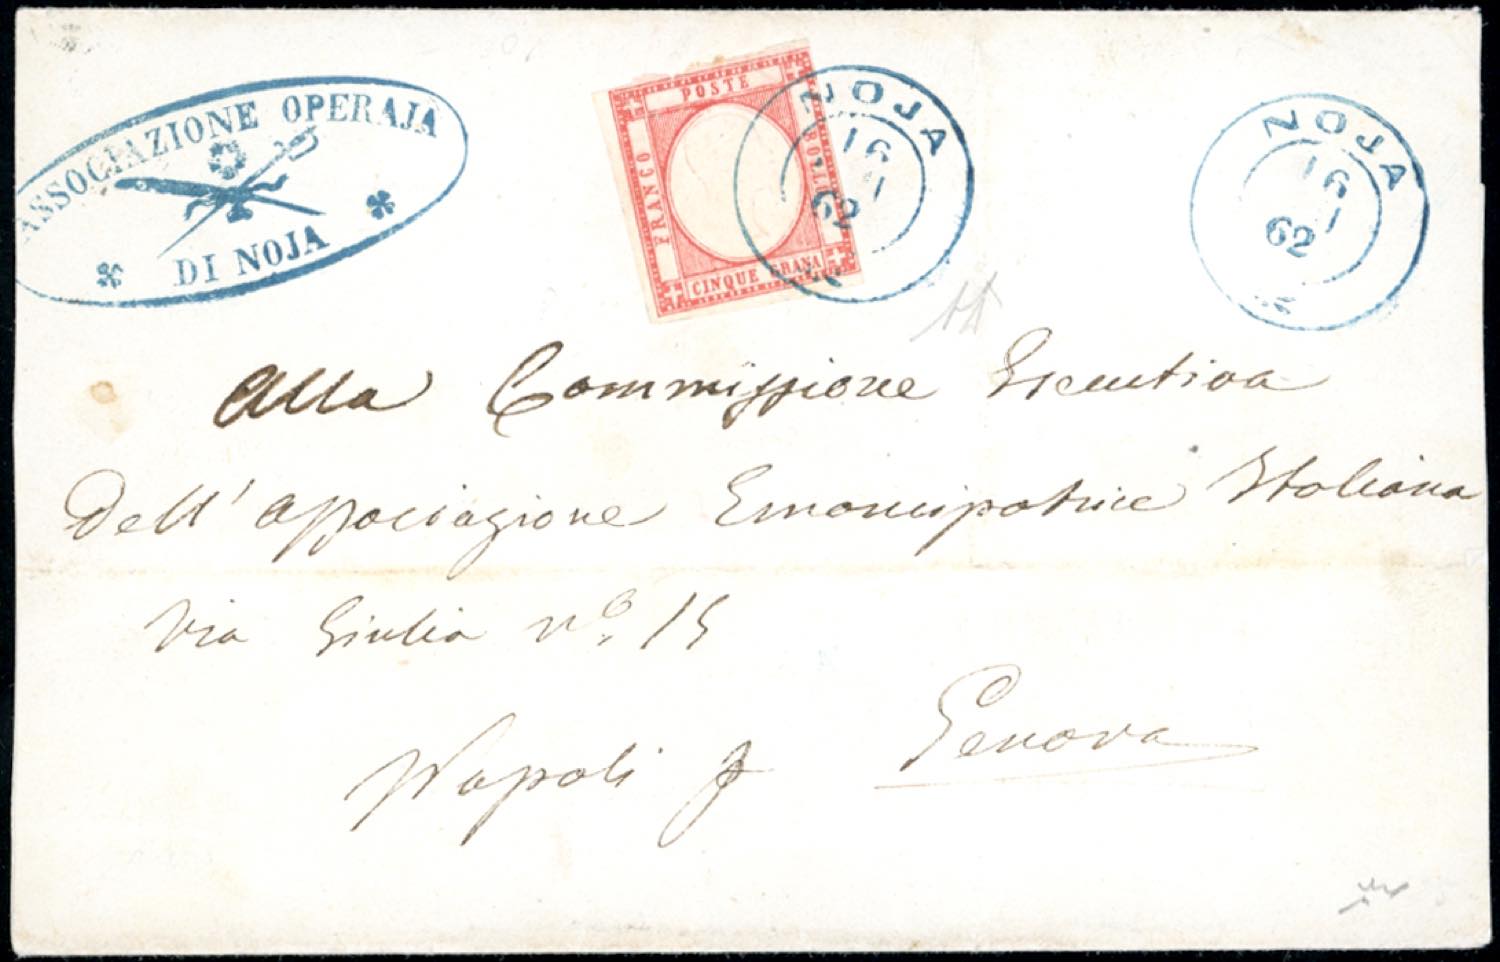 ASSOCIAZIONE OPERAJA
DI NOJA
POSTE
FRANCO
BOLLO
CINQUE GRANA
NOJA
16
62
NOJA
16
62
Alla Commissione Esecutiva
Dell' Associazione Emancipatrice Italiana
Via Giulia n.º 15
Napoli p Genova